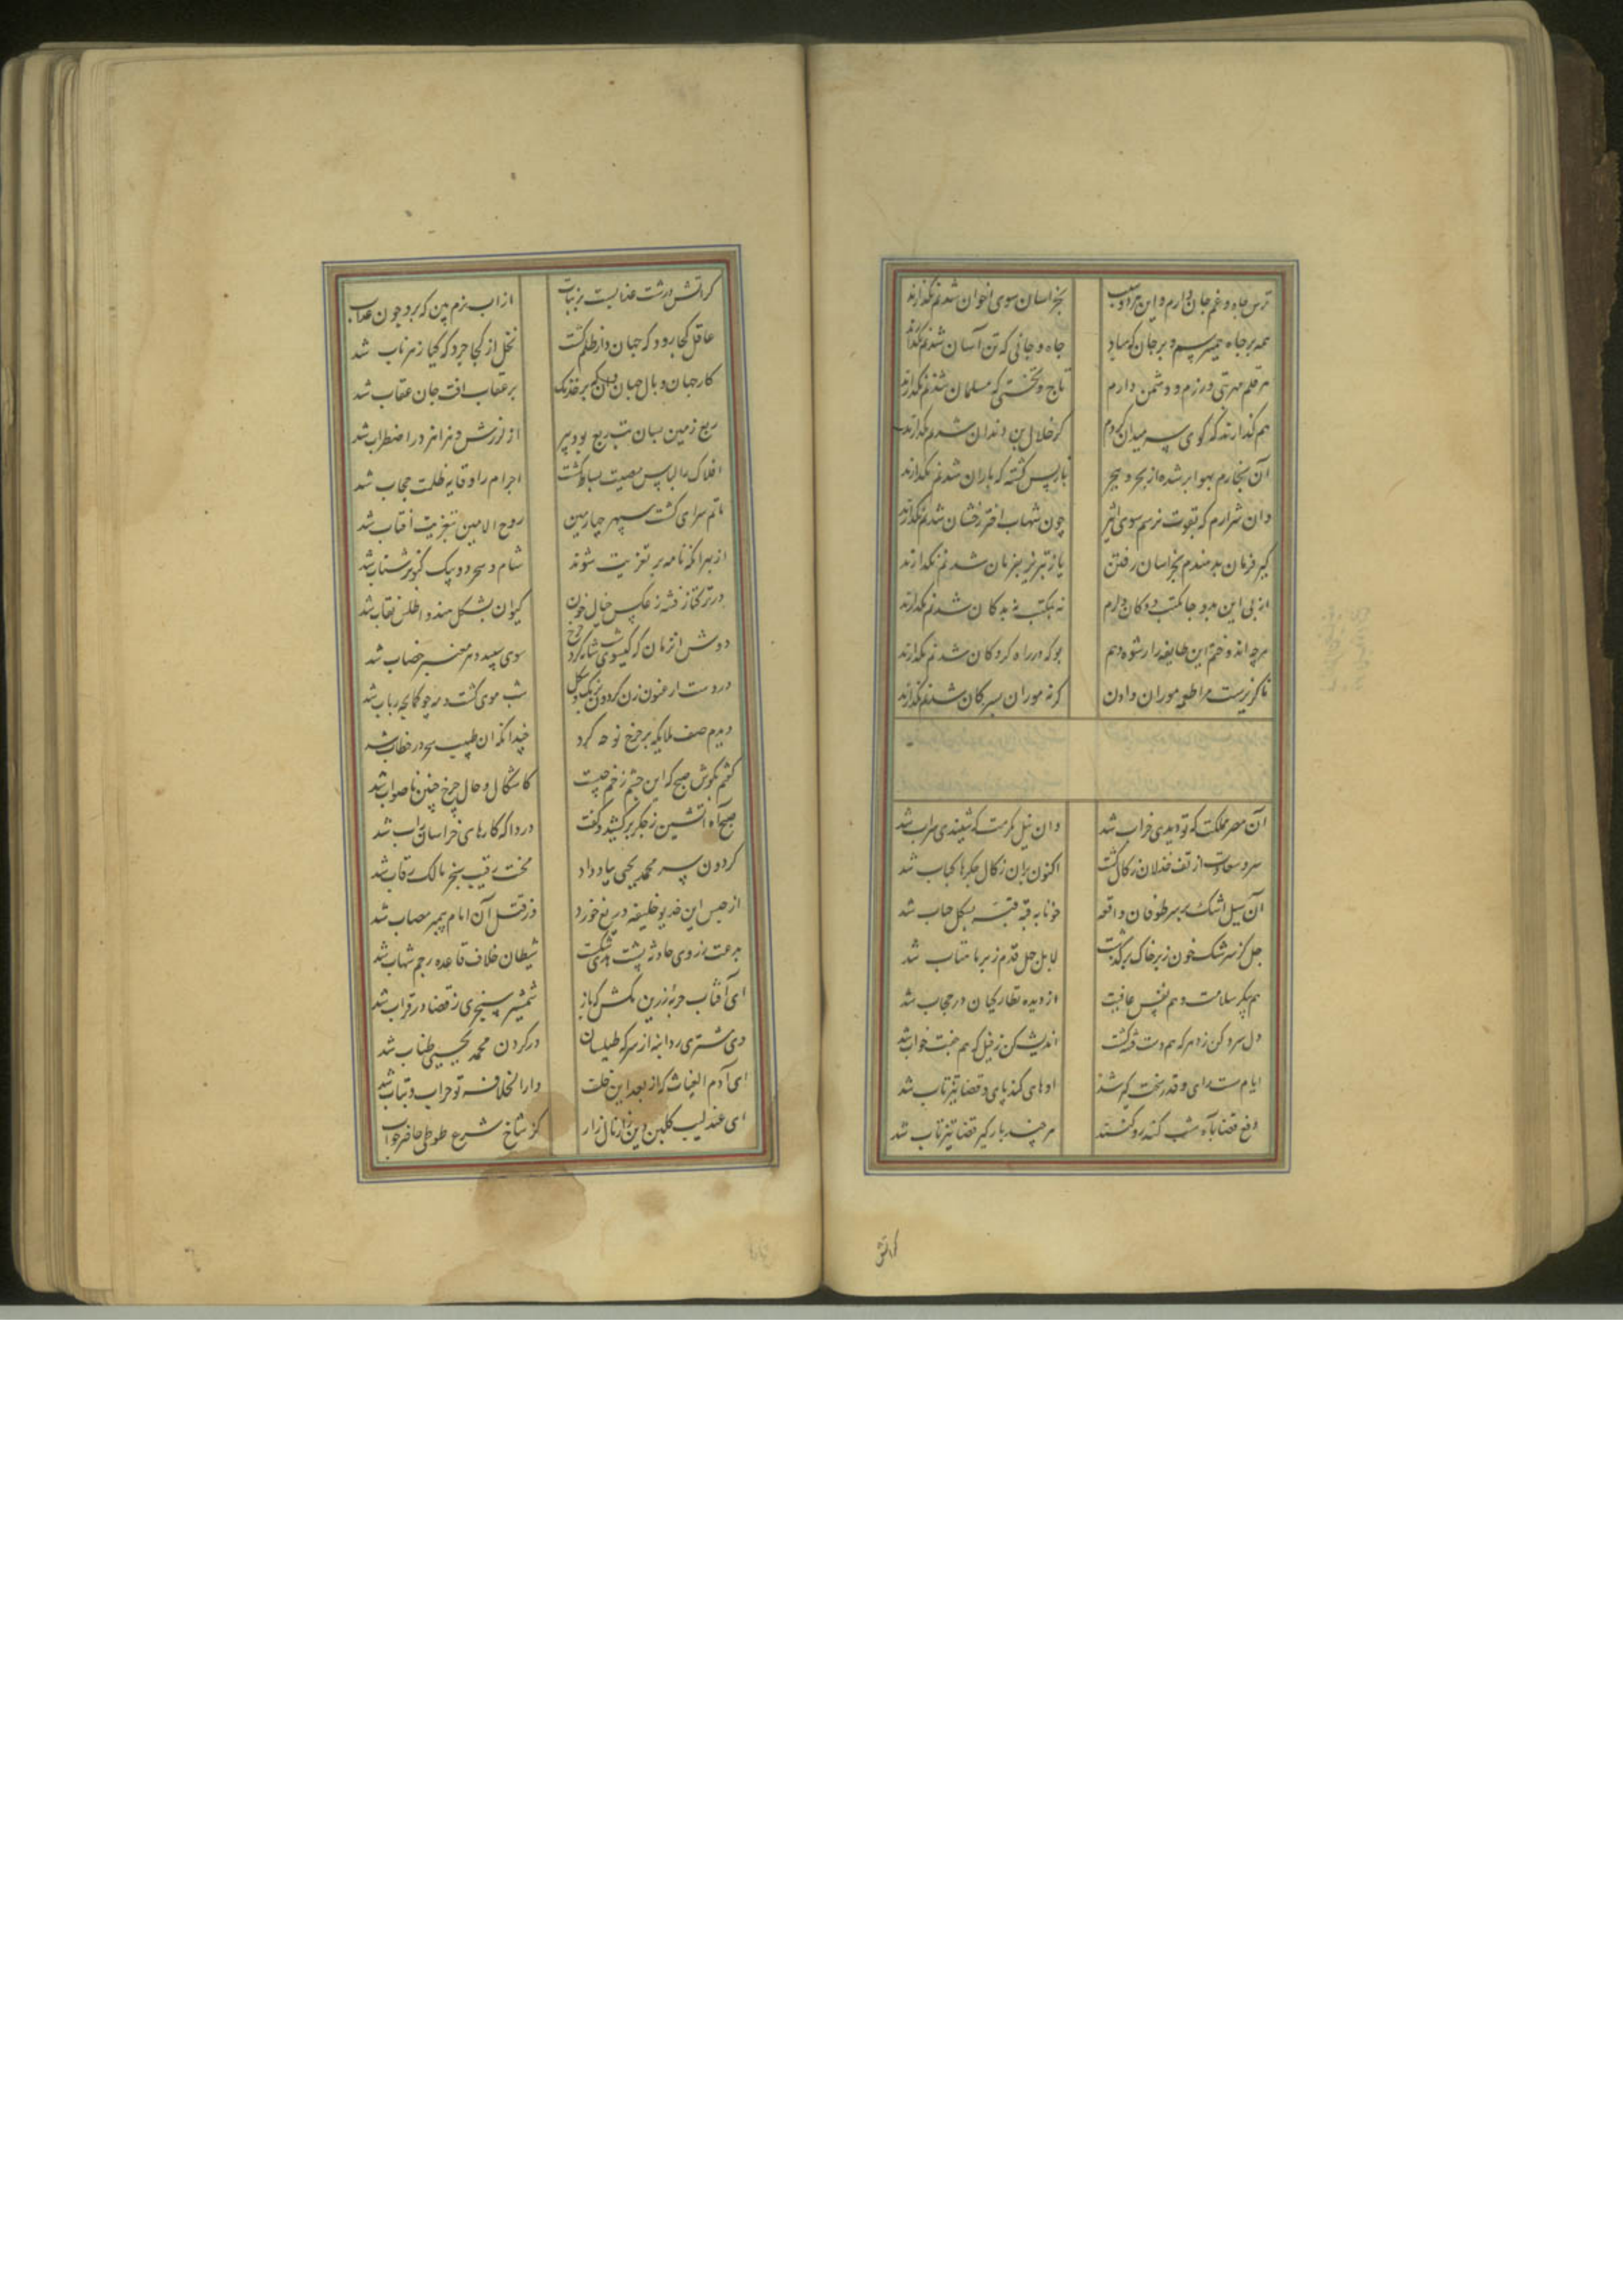 ترس جاه و غم جان دارم و این هر دو سبب بخراسان سوی اخوان شدنم نگذارند
همه بر جاه همی ترسم و بر جان که مباد جاه و جانی که تن آسان شدنم نگذارند
تاج و تختی که مسلمان شدنم نگذارند
هم گذارند که گوی سر میدان گردم کز خلال بن دندان شدنم نگذارند
آن بخارم بهوا بر شده از بحر و ببحر باز پس گشته که باران شدنم نگذارند
وان شرارم که بقوت نرسم سوی اثیر چون شهاب اختر رخشان شدنم نگذارند
گیر فرمان ندهندم بخراسان رفتن باز تبریز بفرمان شدنم نگذارند
از پی این بدو جا مکتب و دکان دارم نه بمکتب نه بدکان شدنم نگذارند
هرچه اندوختم این طایفه را رشوه دهم بو که در راه گروگان شدنم نگذارند
ناگزیرست مرا طعمه موران دادن گرنه موران بسر کان شدنم نگذارند
آن مصر مملکت که تو دیدی خراب شد وان نیل مکرمت که شنیدی سراب شد
سرو سعادت از تف خذلان زکال گشت اکنون بران زکال جگرها کباب شد
آن سیل اشک بر سر طوفان واقعه خونابه قبه قبه بشکل حباب شد
هم پیکر سلامت و هم نقش عافیت از دیده نظارگیان در حجاب شد
دل سرد کن ز دهر که هم دست فتنه گشت اندیشه کن ز فیل که هم جفت خواب شد
ایام سست رای و قدر سخت گیر شد اوهام کند پای و قضا تیز تاب شد
دفع قضا بآه شب کنند رو کنند هر چند بارگیر قضا تیز تاب شد
کراتش
کراتش درشت عذابیست بر نبات از آب نرم بین که برو چون عذاب شد
عاقل کجا رود که جهان دار ظلم گشت نحل از کجا چرد که گیا زهر ناب شد
کار جهان وبال جهان دان که بر خدنگ پر عقاب آفت جان عقاب شد
ربع زمین بسان تب ربع برده پیر از لرزش و هزاهز در اضطراب شد
افلاک را لباس مصیبت بساط گشت اجرام را وقایه ظلمت حجاب شد
ماتم سرای گشت سپهر چهارمین روح الامین بتعزیت آفتاب شد
از بهر آنکه نامه بر تعزیت شوند شام و سحر دو پیک کبوتر شتاب شد
در ترکتاز فتنه ز عکس خیال خون کیوان بشکل هندو اطلس نقاب شد
دوش آنزمان که گیسوی شب شانه کرد چرخ موی سپید دهر معنبر خضاب شد
در دست ارغنون زن گردون برنگ و شکل شب موی گشت و مه چو کمانچه رباب شد
دیدم صف ملائکه بر چرخ نوحه گر چندانکه آن خطیب سحر در خطاب شد
گفتم بگوش صبح که این چشم زخم چیست کاشکال و حال چرخ چنین ناصواب شد
صبح آه آتشین ز جگر برکشید و گفت دردا که کارهای خراسان ز آب شد
گردون سر محمد یحیی بباد داد محنت رقیب سنجر مالک رقاب شد
از حبس این خدیو خلیفه دریغ خورد وز قتل آن امام پیمبر مصاب شد
بدعت ز روی حادثه پشت هدی شکست شیطان خلاف قاعده رجم شهاب شد
ای آفتاب حربه زرین مکش که باز شمشیر سنجری ز قضا در قراب شد
وی مشتری ردا بنه از سر که طیلسان در گردن محمد یحیی طناب شد
ای آدم الغیاث که از بعد این خلف دار الخلافه تو خراب و یباب شد
ای عندلیب گلبن دین زار نال زار کز شاخ شرع طوطی حاضر جواب شد